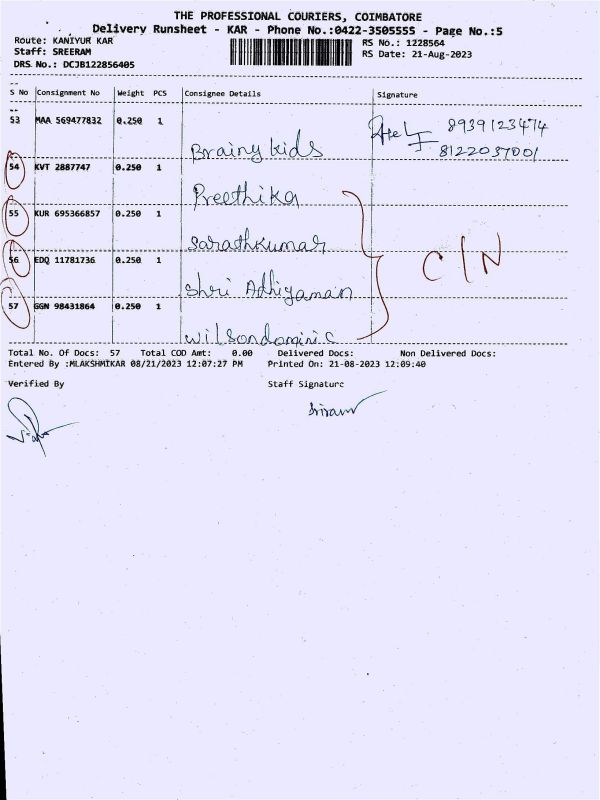 THE PROFESSIONAL COURIERS, COIMBATORE
Delivery Runsheet - KAR - Phone No.:0422-3505555 - Page No.:5
Route: KANIYUR KAR
RS No.: 1228564
Staff: SREERAM
RS Date: 21-Aug-2023
DRS No.: DCJB122856405
S No Consignment No Weight PCS Consignee Details Signature
53 MAA 569477832 0.250 1
8939123474
Brainy kids 8122037001
54 KVT 2887747 0.250 1
Preethika
55 KUR 695366857 0.250 1
Sarathkumar
56 EDQ 11781736 0.250 1
C/N
Shri Adhiyaman
57 GGN 98431864 0.250 1
Wilsondominic
Total No. Of Docs: 57 Total COD Amt: 0.00 Delivered Docs: Non Delivered Docs:
Entered By :MLAKSHMIKAR 08/21/2023 12:07:27 PM Printed On: 21-08-2023 12:09:40
Verified By Staff Signature
Sriram